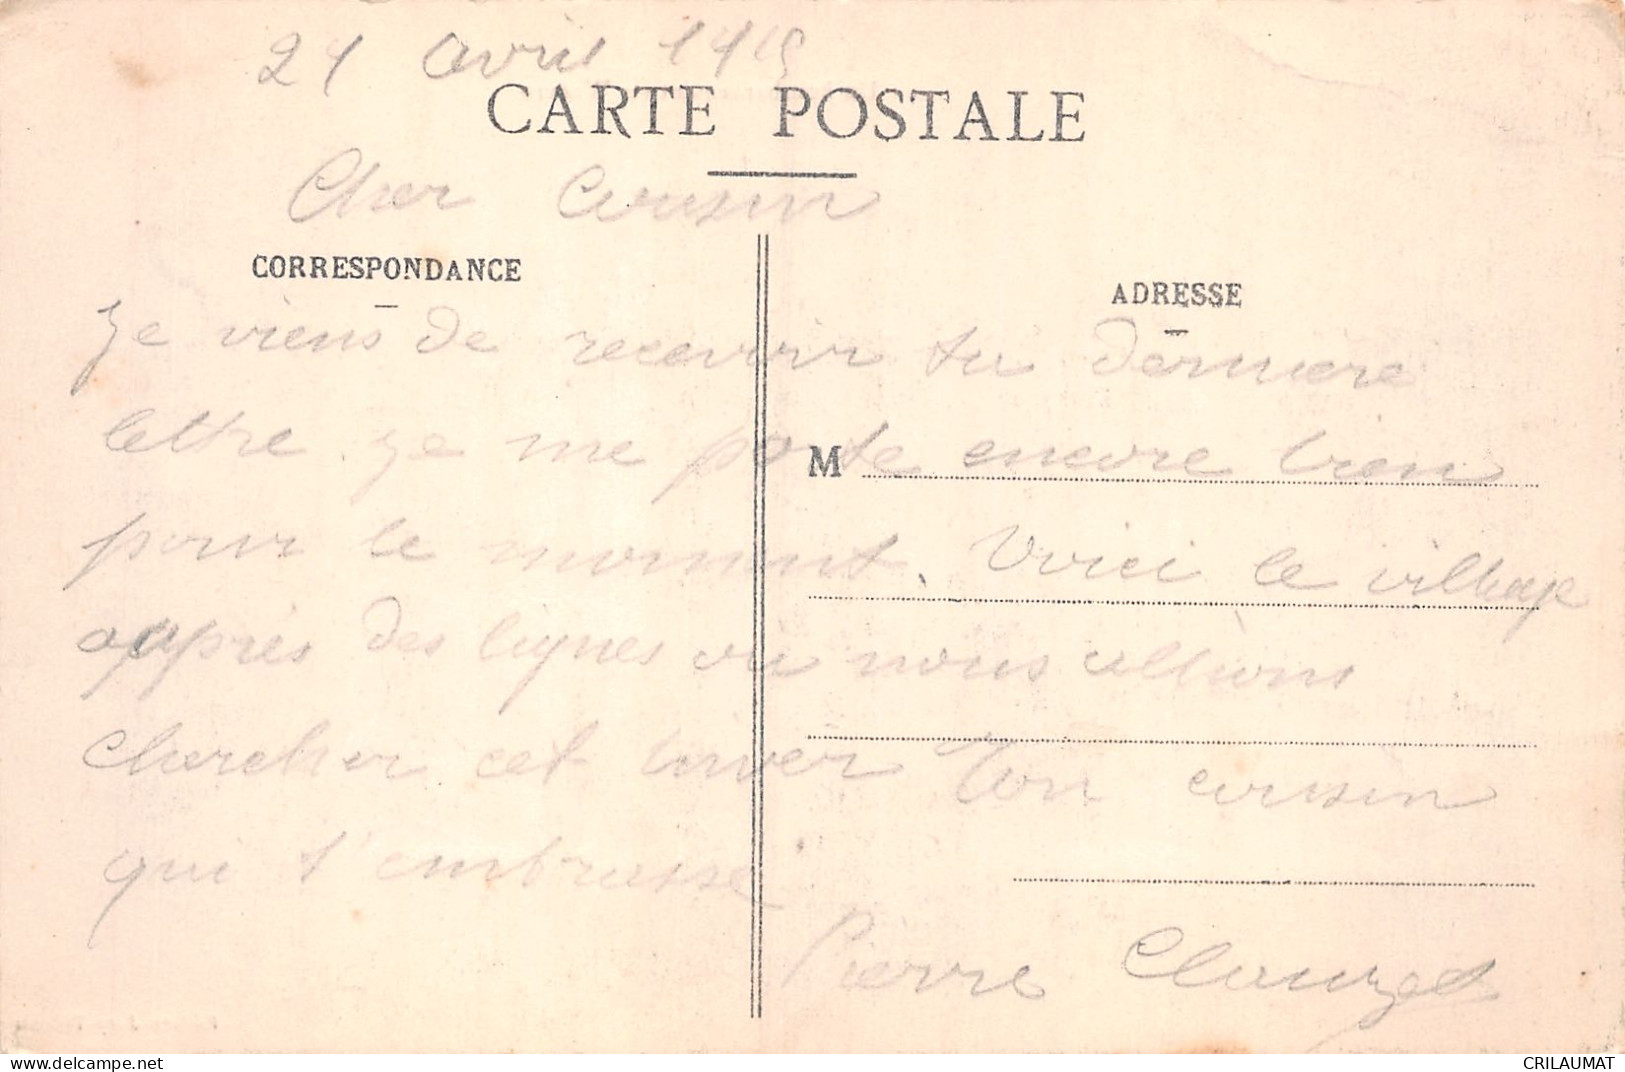 21 avril 1915
CARTE POSTALE
Cher Cousin
CORRESPONDANCE
ADRESSE
Je viens de recevoir ta derniere
lettre. Je me porte encore bien
M
pour le moment. Voici le village
apprés des lignes où nous allions
chercher cet hiver Ton cousin
qui t'embrasse
Pierre Clauzel
delcampe.net
CRILAUMAT